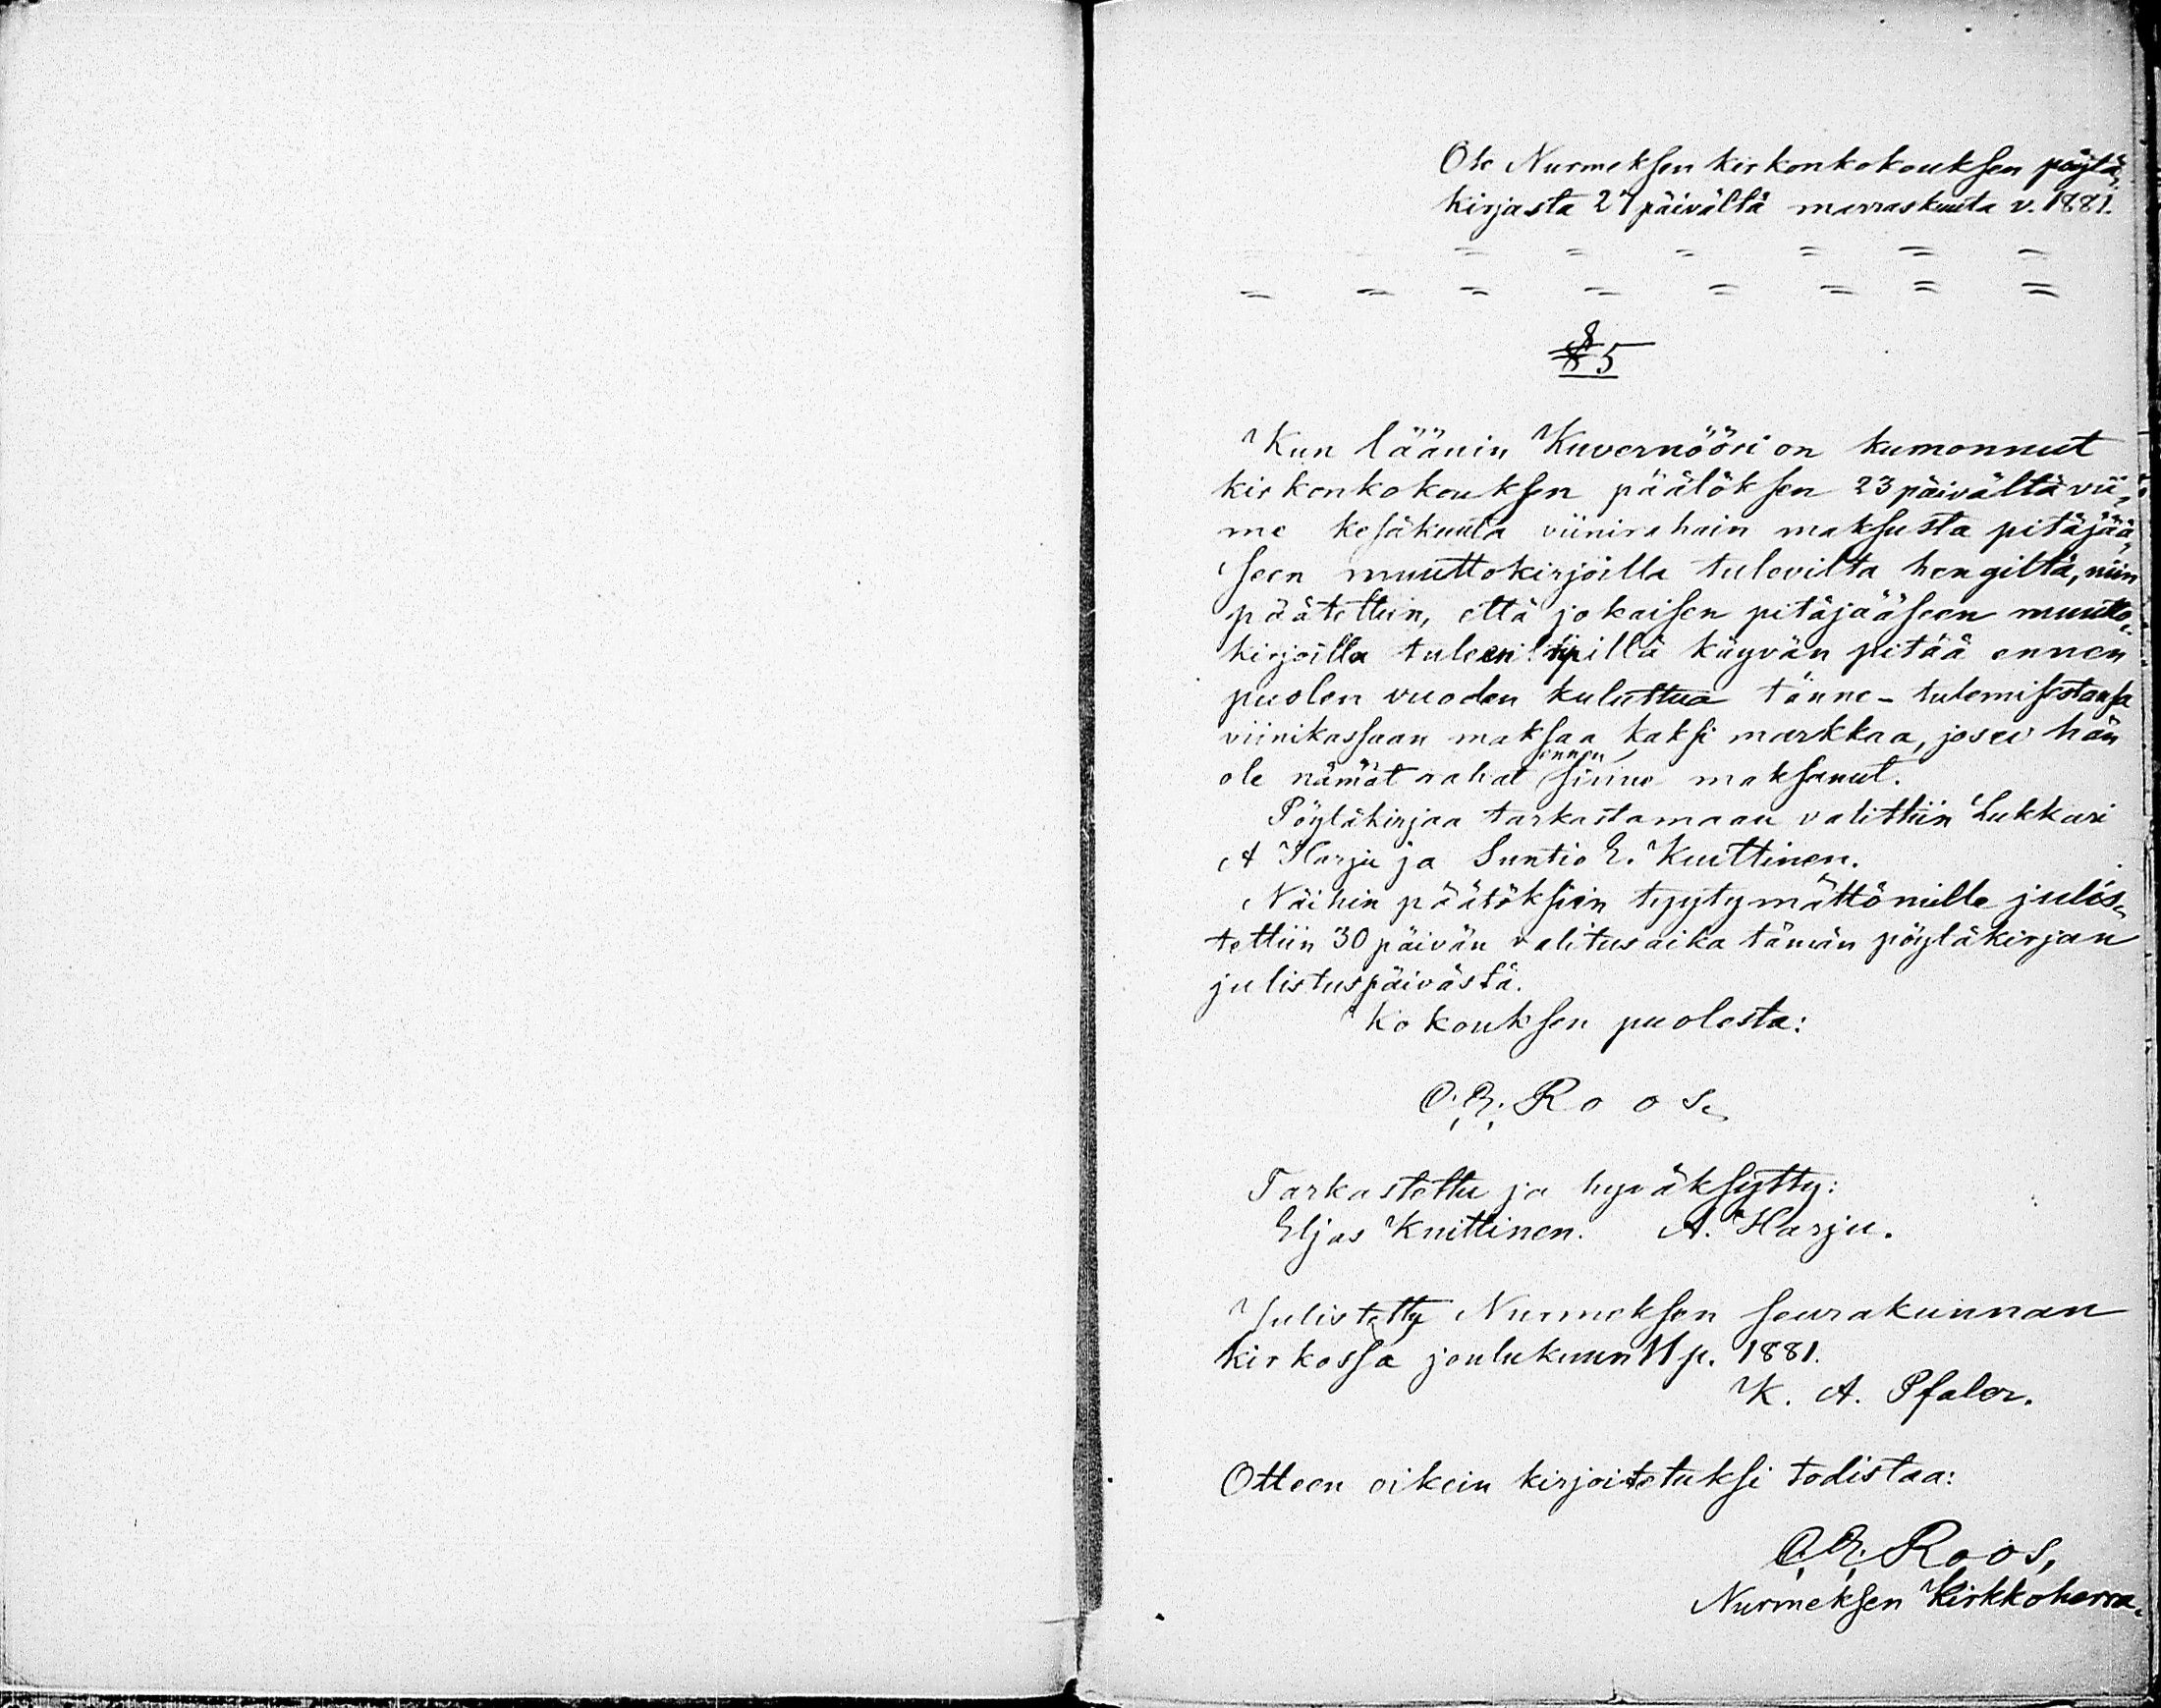 Ote Nurmeksen kirkonkokouksen pöytä„
kirjasta 27 päivältä marraskuuta v. 1881.
= = = = = = = =
= = = = = = = =
§ 5
Kun läänin Kuvernööri on kumonnut
kirkonkokouksen päätöksen 23 päivältä vii„
me kesäkuuta viinirahain maksusta pitäjää„
seen muuttokirjoilla tulevilta hengiltä, niin
päätettiin, että jokaisen pitäjääseen muutto„
kirjoilla tuleen ripillä käyvän pitää ennen
puolen vuoden kuluttua tänne-tulemisestansa
viinikassaan maksaa kaksi markkaa, jos ei hän
ole nämät rahat ennen sinne maksanut.
Pöytäkirjaa tarkastamaan valittiin Lukkari
A Harju ja Suntio E. Kuittinen.
Näihin päätöksiin tyytymättömille julis„
tettiin 30 päivän valitusaika tämän pöytäkirjan
julistuspäivästä.
Kokouksen puolesta:
O. E. Roos.
Tarkastettu ja hyväksytty:
Eljas Kuittinen. A. Harju.
Julistetty Nurmeksen seurakunnan
kirkossa joulukuun 11 p. 1881.
K. A. Pfaler.
Otteen oikein kirjoitetuksi todistaa:
O. E. Roos,
Nurmeksen Kirkkoherra.